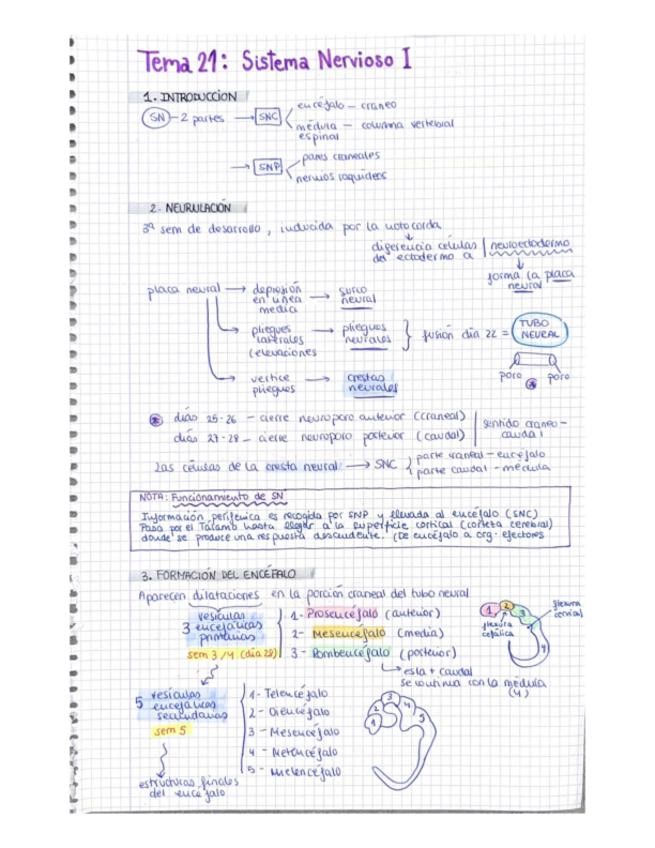 Tema 21: Sistema Nervioso I
1. INTRODUCCION
SN - 2 partes → SNC encéfalo - craneo
médula - columna vertebral
espinal
→ SNP pares craneales
nervios raquídeos
2. NEURULACIÓN
3ª sem de desarrollo, inducida por la notocorda
diferencia células | neuroectodermo
del ectodermo a
forma la placa
neural
placa neural → depresión → surco
en línea neural
media
pliegues → pliegues } fusión día 22 = TUBO
laterales neurales NEURAL
(elevaciones
poro * poro
vertice → crestas
pliegues neurales
* días 25-26 - cierre neuroporo anterior (craneal) | sentido craneo-
días 27-28 - cierre neuroporo posterior (caudal) | caudal
Las células de la cresta neural → SNC { parte craneal - encéfalo
parte caudal - médula
NOTA: Funcionamiento de SN
Información periférica es recogida por SNP y llevada al encéfalo (SNC)
Pasa por el Tálamo hasta llegar a la superficie cortical (corteza cerebral)
donde se produce una respuesta descendente. (De encéfalo a org. efectores
3. FORMACIÓN DEL ENCÉFALO
Aparecen dilataciones en la porción craneal del tubo neural
3 vesículas encefálicas primarias
sem 3/4 (día 28)
1- Prosencéfalo (anterior)
2- Mesencéfalo (media)
3- Rombencéfalo (posterior)
→ es la + caudal
se continua con la médula
(4)
1 2 3 4
flexura cefálica
flexura cervical
5 vesículas encefálicas secundarias
sem 5
1- Telencéfalo
2- Diencéfalo
3- Mesencéfalo
4- Metencéfalo
5- Mielencéfalo
1 2 3 4 5
estructuras finales
del encéfalo